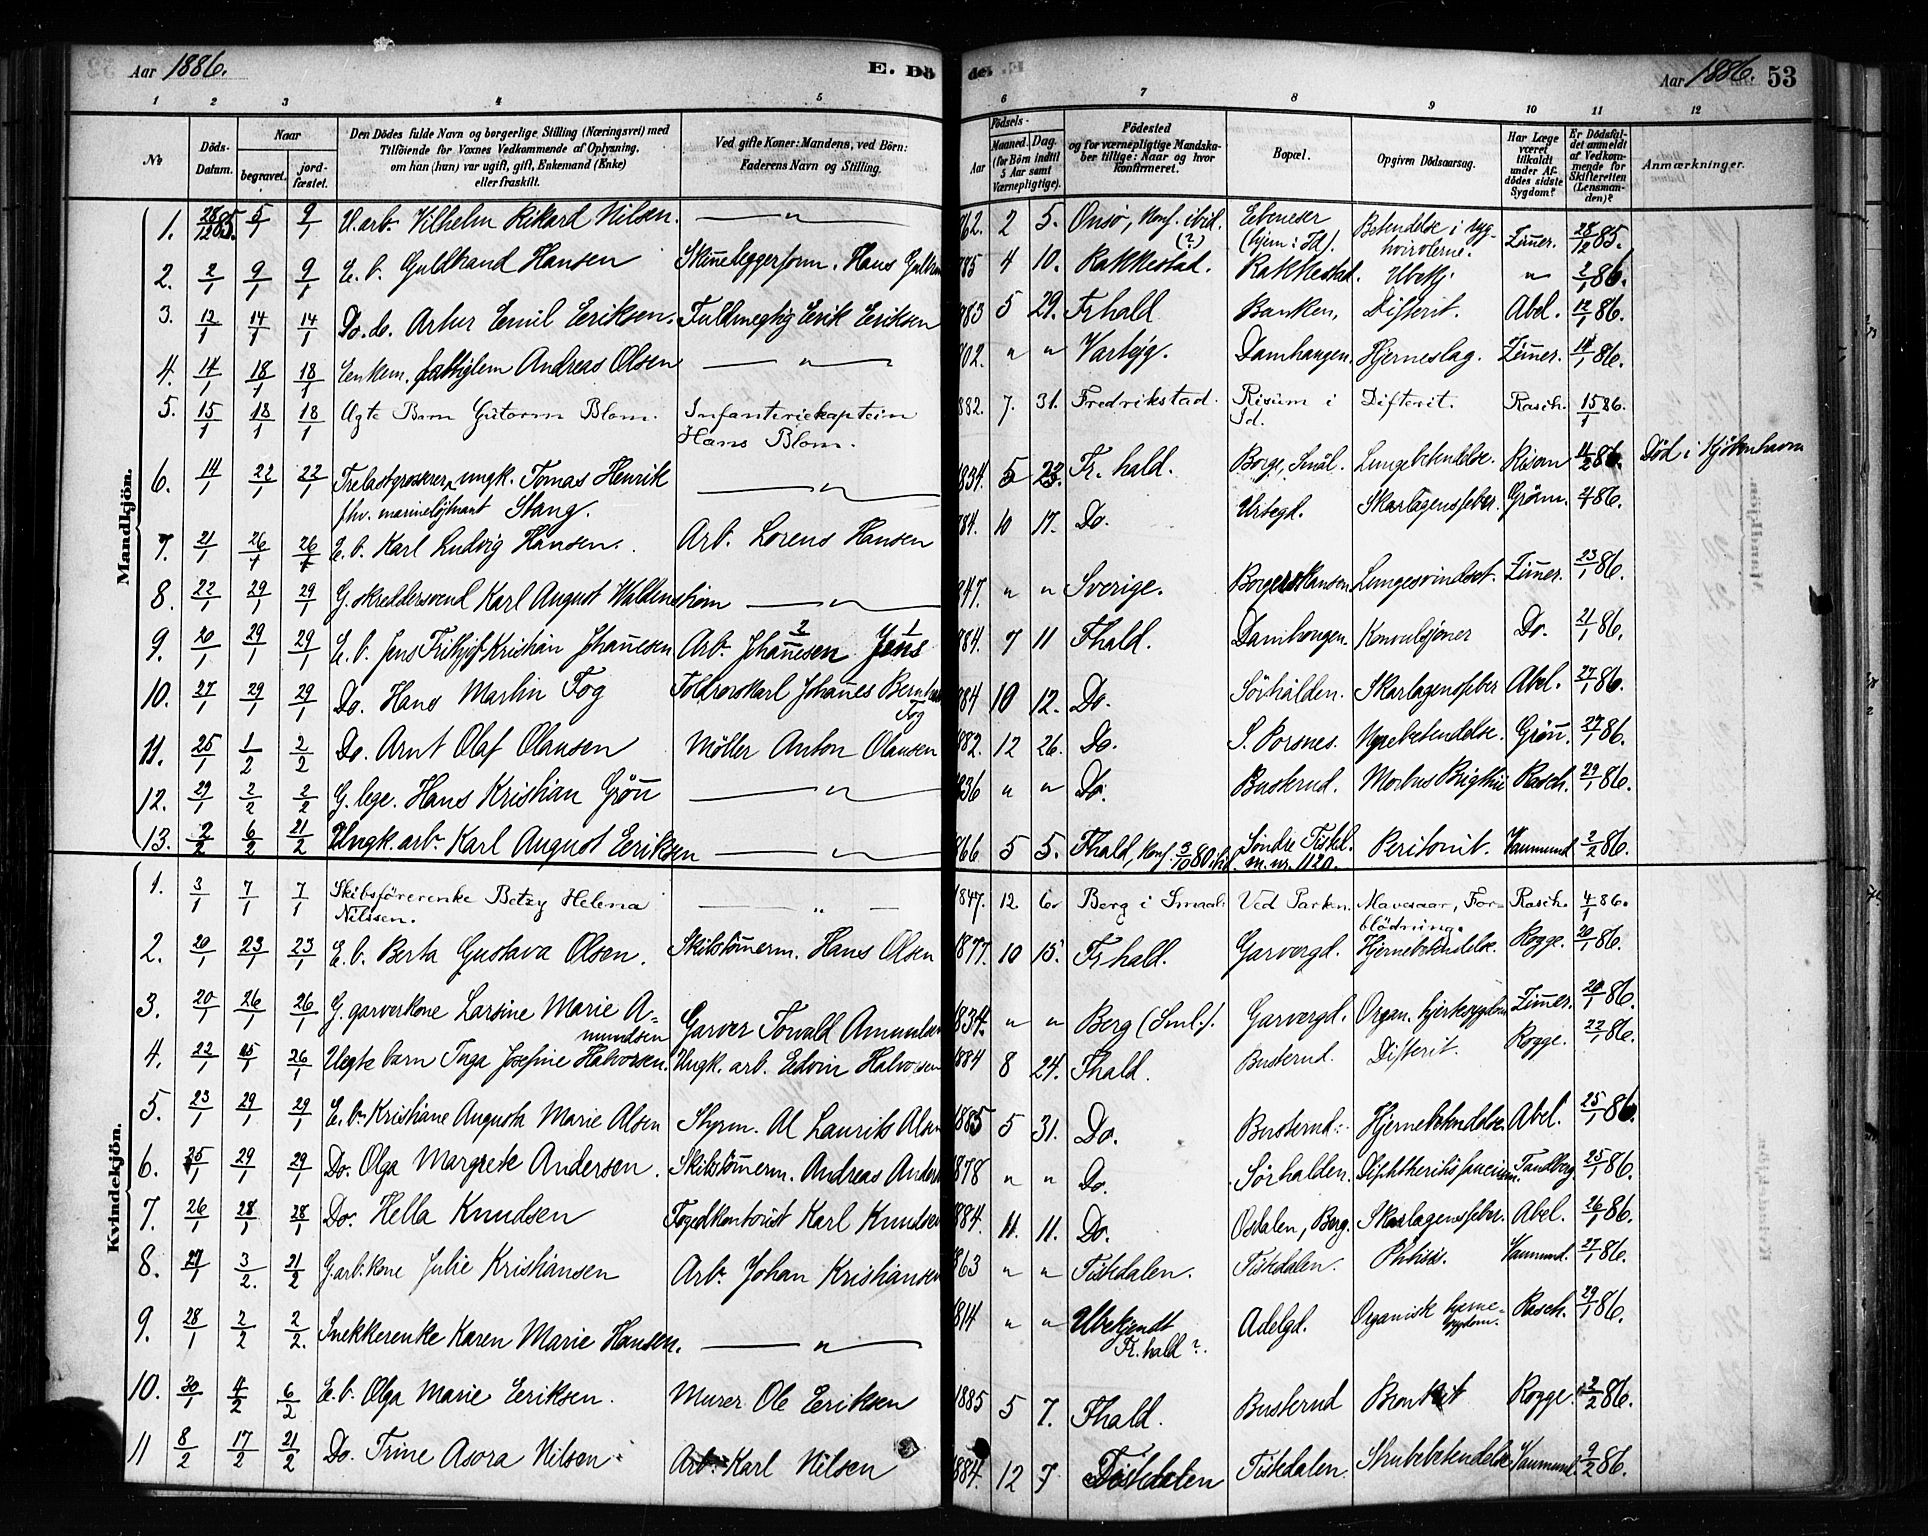 Aar 1886. E. Dö
de. Aar 1886. 53
1 2 3 4 5 6 7 8 9 10 11 12
No
Döds-Datum.
Naar
begravet.
jord-fæstet.
Den Dödes fulde Navn og borgerlige Stilling (Næringsvei) med
Tilföiende for Voxnes Vedkommende af Oplysning,
om han (hun) var ugift, gift, Enkemand (Enke)
eller fraskilt.
Ved gifte Koner: Mandens, ved Börn:
Faderens Navn og Stilling.
Födsels-
Aar
Maaned. Dag
(for Börn indtil
5 Aar samt
Værnepligtige).
Födested
og for værnepligtige Mandska-
ber tillige: Naar og hvor
konfirmeret.
Bopæl.
Opgiven Dödsaarsag.
Har Læge
været
tilkaldt
under Af-
dödes sidste
Sygdom?
Er Dödsfal-
det anmeldt
af Vedkom-
mende for
Skifteretten
(Lensman-
den)?
Anmærkninger.
Mandkjön.
1. 28/12 85. 5/1 9/1 U. arb. Vilhelm Rikard Nilsen. — " — 862. 2 5. Onsö, konf. ibid. (?) Ebeneser (hjem: Id). Betendelse i ryg-hvirvlerne. Zimer. 28/12 85.
2. 2/1 9/1 9/1 E. b. Guldbrand Hansen Skinneleggerform. Hans Guldbr 885 4 10. Rakkestad. Rakkestad. Ubekj. " 2/1 86.
3. 12/1 14/1 14/1 Do. do. Artur Emil Eriksen. Fuldmegtig Erik Eriksen 883 5 29. Frhald Banken, Difterit. Abel. 12/1 86.
4. 14/1 18/1 18/1 Enkem. fattiglem Andreas Olsen — " — 802. " " Varteig. Damhaugen. Hjerneslag. Zimer. 14/1 86.
5. 15/1 18/1 18/1 Ægte Barn Gutorm Blom. Infanteriekaptein Hans Blom. 882. 7. 31. Fredrikstad. Risum i Id. Difterit. Rasch. 15/1 86.
6. 14/1 22/1 22/1 Trelastgrosserer, ungk. Tomas Henrik fhv. marinelöjtnant Stang. — " — 1834. 5 23. Fr. hald. Borge, Smål. Lungebetendelse. Risom 11/2 86. Död i Kjöbenhavn
7. 21/1 26/1 26/1 E. b. Karl Ludvig Hansen. Arb. Lorens Hansen 884. 10 17. Do. Urtegd. Skarlagensfeber. Grönn. 86.
8. 22/1 29/1 29/1 G. skreddersvend Karl August Waldenström — " — 847. " " Sverige. Borgerskansen Lungesvindsot. Zimer. 23/1 86.
9. 20/1 29/1 29/1 E. b. Jens Frithjof Kristian Johanesen Arb. Johanesen 2 Jens 1 884. 7 11 Fhald. Damhaugen. Konvulsjoner Do. 21/1 86.
10. 27/1 29/1 29/1 Do. Hans Martin Fog Toldrorskarl Johanes Bernt Fog 884 10 12. Do. Sörhalden. Skarlagensfeber Abel. 27/1 86.
11. 25/1 1/2 2/2 Do. Arnt Olaf Olausen Möller Anton Olausen 882. 12 26. Do. S. Porsnes. Nyrebetendelse. Grön. 27/1 86.
12. 29/1 2/2 2/2 G. lege. Hans Kristian Grön — " — 836 " " Do. Busterud. Morbus Brigthii Rasch. 29/1 86.
13. 2/2 6/2 21/2 Ungk. arb. Karl August Eriksen — " — 866 5 5. Fhald, konf. 3/10 80. ibid. Söndre Tistd. m. nr. 1120. Peritonit. Vammund 2/2 86.
Kvindekjön.
1. 3/1 7/1 7/1 Skibsförerenke Betzy Helena Nilssen. — " — 1847. 12 6. Berg i Smaal. Ved Parken. Mavesaar, For-blödning. Rasch. 4/1 86.
2. 20/1 23/1 23/1 E. b. Berta Gustava Olsen. Skibstömerm. Hans Olsen 1877. 10 15. Fr hald. Garvergd. Hjernebetendelse. Rogge. 20/1 86.
3. 20/1 26/1 26/1 G. garverkone Larsine Marie A-mundsen Garver Torvald Amundsen 1834. " " Berg (Sml.). Garvergd. Organ. hjertesygdom Zimer. 20/1 86.
4. 22/1 25/1 26/1 Uegte barn Inga Josefine Halvorsen. Ungk. arb. Edvin Halvorsen 1884 8 24. Fhald. Busterud. Difterit. Rogge. 22/1 86.
5. 23/1 29/1 29/1 E. b. Kristiane Augusta Marie Alsen Styrm. Al Laurits Alsen 1885 5 31. Do. Busterud. Hjernebetendelse. Abel. 25/1 86.
6. 25/1 29/1 29/1 Do. Olga Margrete Andersen. Skibstömerm. Andreas Anders 1878 " " Do. Sörhalden. Diphtheritis faucium. Tandberg. 25/1 86.
7. 26/1 28/1 28/1 Do. Hella Knudsen Fogedkontorist Karl Knudsen 1884. 11. 11. Do. Osdalen, Berg. Skarlagensfeber. Abel. 26/1 86.
8. 27/1 3/2. 21/2 G. arb. kone Julie Kristiansen Arb. Johan Kristiansen 863 " " Tistedalen. Tistedalen. Phthisis. Vammund. 27/1 86.
9. 28/1 2/2 2/2. Snekkerenke Karen Marie Hansen. — " — 1814 " " Ubekjendt Fr. hald?. Adelgd. Organisk hjerne-sygdom. Rasch. 29/1 86.
10. 30/1 4/2 6/2 E. b. Olga Marie Eriksen. Murer Ole Eriksen 1885 5 7. Fhald. Busterud Bronkit Rogge. 2/2 86.
11 8/2 17/2 21/2 Do. Trine Asora Nilsen. Arb. Karl Nilsen 1884. 12 7 Tistedalen Tistedalen. Strubebetendelse Vammund. 9/2 86.